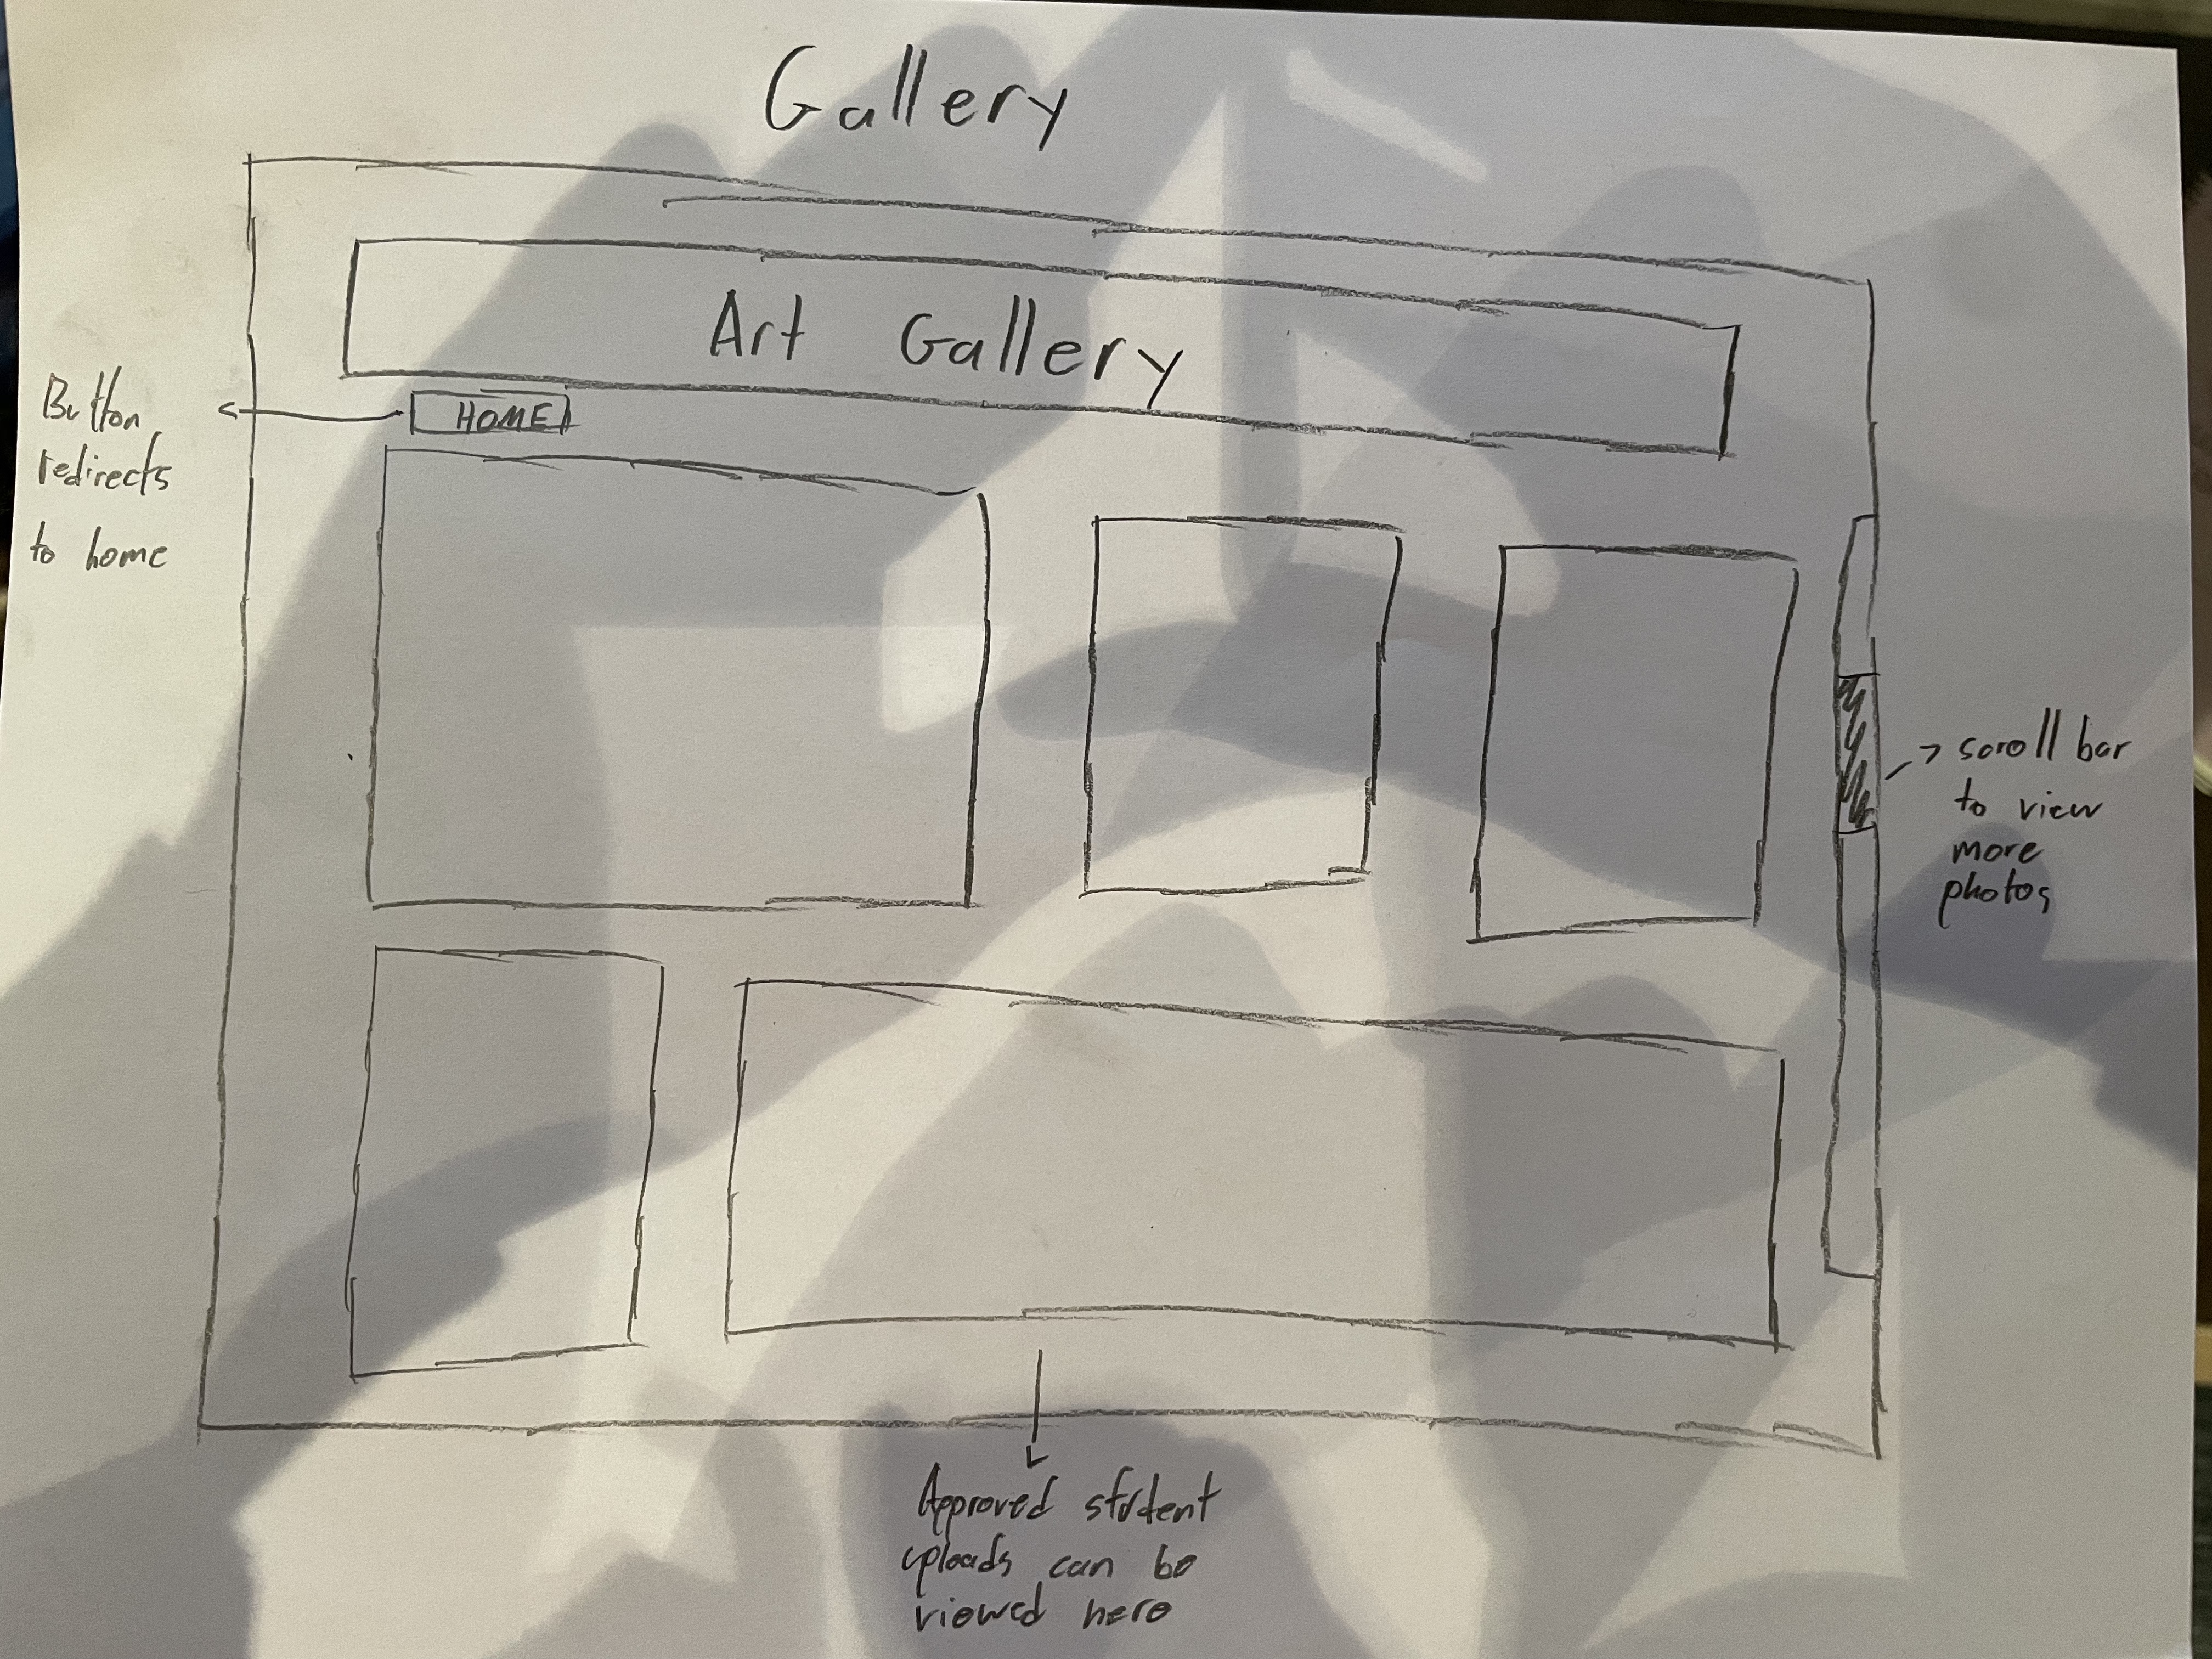 Gallery
Art Gallery
HOME
Button
redirects
to home
scroll bar
to view
more
photos
Approved student
uploads can be
viewed here